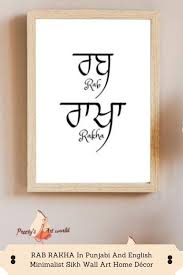 ਰਬ
Rab
ਰਾਖਾ
Rakha
Preety's Art world
RAB RAKHA In Punjabi And English
Minimalist Sikh Wall Art Home Décor